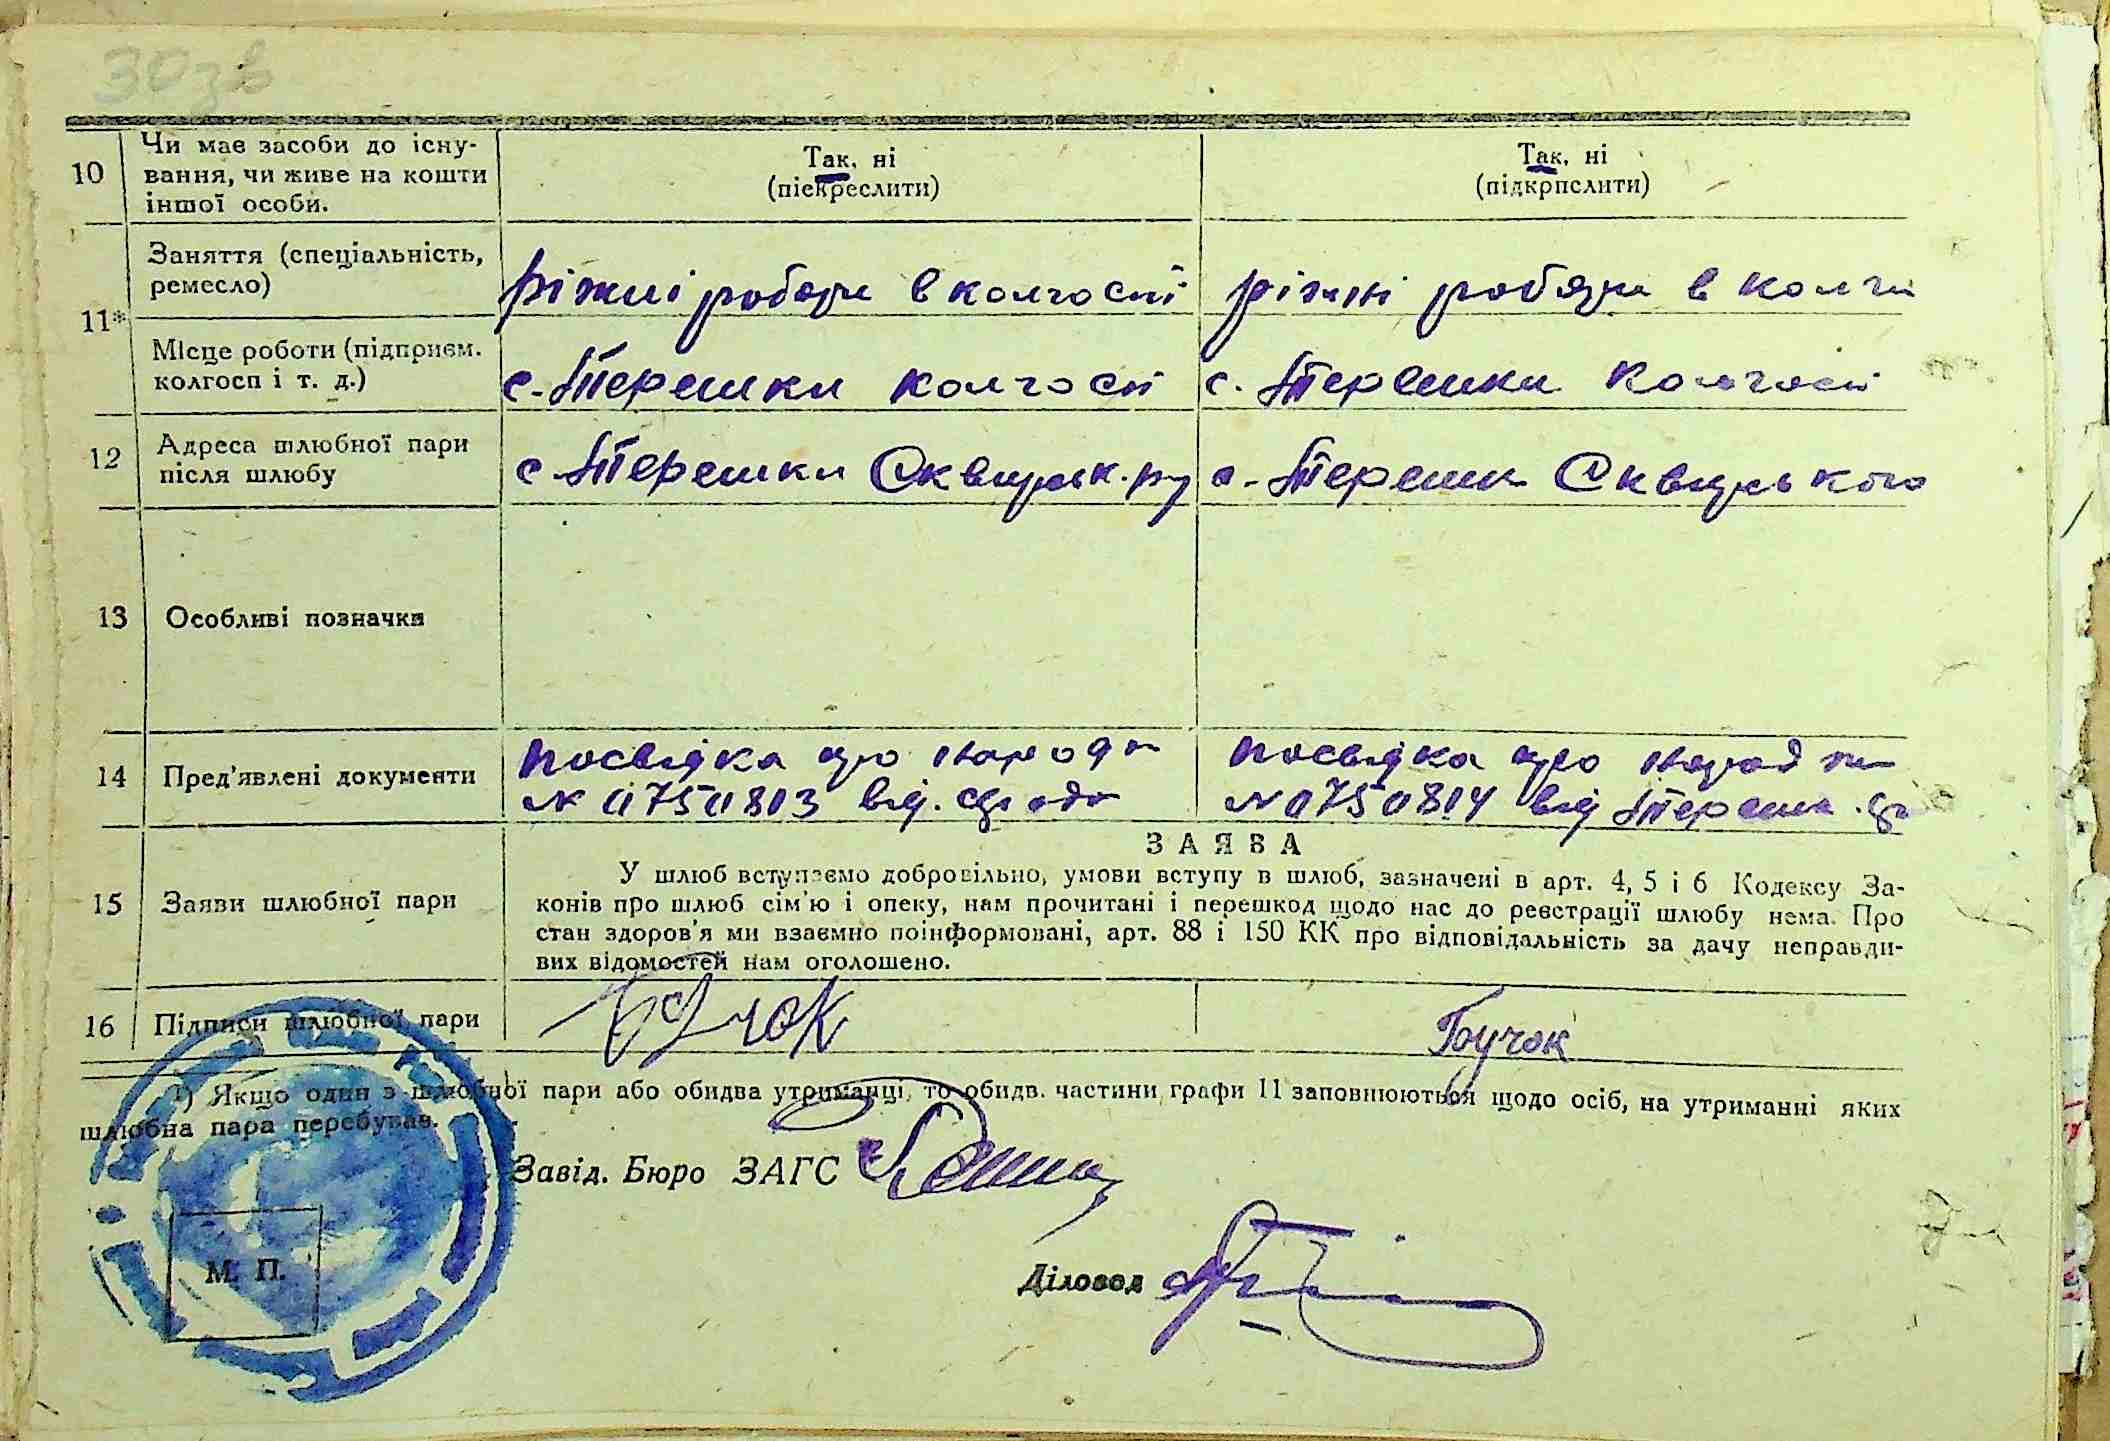 30зв
10
Чи має засоби до існу-
вання, чи живе на кошти
іншої особи.
Так, ні
(піекреслити)
Так, ні
(підкрпслити)
11*
Заняття (спеціальність,
ремесло)
ріжні роботи в колгоспі
ріжні роботи в колг
Місце роботи (підприєм.
колгосп і т. д.)
с. Терешки колгосп
с. Терешки колгосп
12
Адреса шлюбної пари
після шлюбу
с Терешки Сквирськ. р-ну
с. Терешки Сквирського
13
Особливі позначки
14
Пред'явлені документи
посвідка про народж
№ 0750813 від.
посвідка про народж
№ 0750814 від Тереш.
15
Заяви шлюбної пари
ЗАЯВА
У шлюб вступаємо добровільно, умови вступу в шлюб, зазначені в арт. 4, 5 і 6 Кодексу За-
конів про шлюб сім'ю і опеку, нам прочитані і перешкод щодо нас до реєстрації шлюбу нема. Про
стан здоров'я ми взаємно поінформовані, арт. 88 і 150 КК про відповідальність за дачу неправди-
вих відомостей нам оголошено.
16
Підписи шлюбної пари
Бучок
¹) Якщо один з шлюбної пари або обидва утриманці, то обидв. частини графи 11 заповнюються щодо осіб, на утриманні яких
шлюбна пара перебуває.
Завід. Бюро ЗАГС
М. П.
Діловод